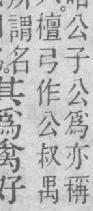 公子公爲亦稱
檀弓作公叔禺
謂名
其爲禽好